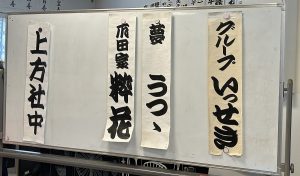 グループ いっせき
夢 うつゝ
爪田家 粋花
上方社中